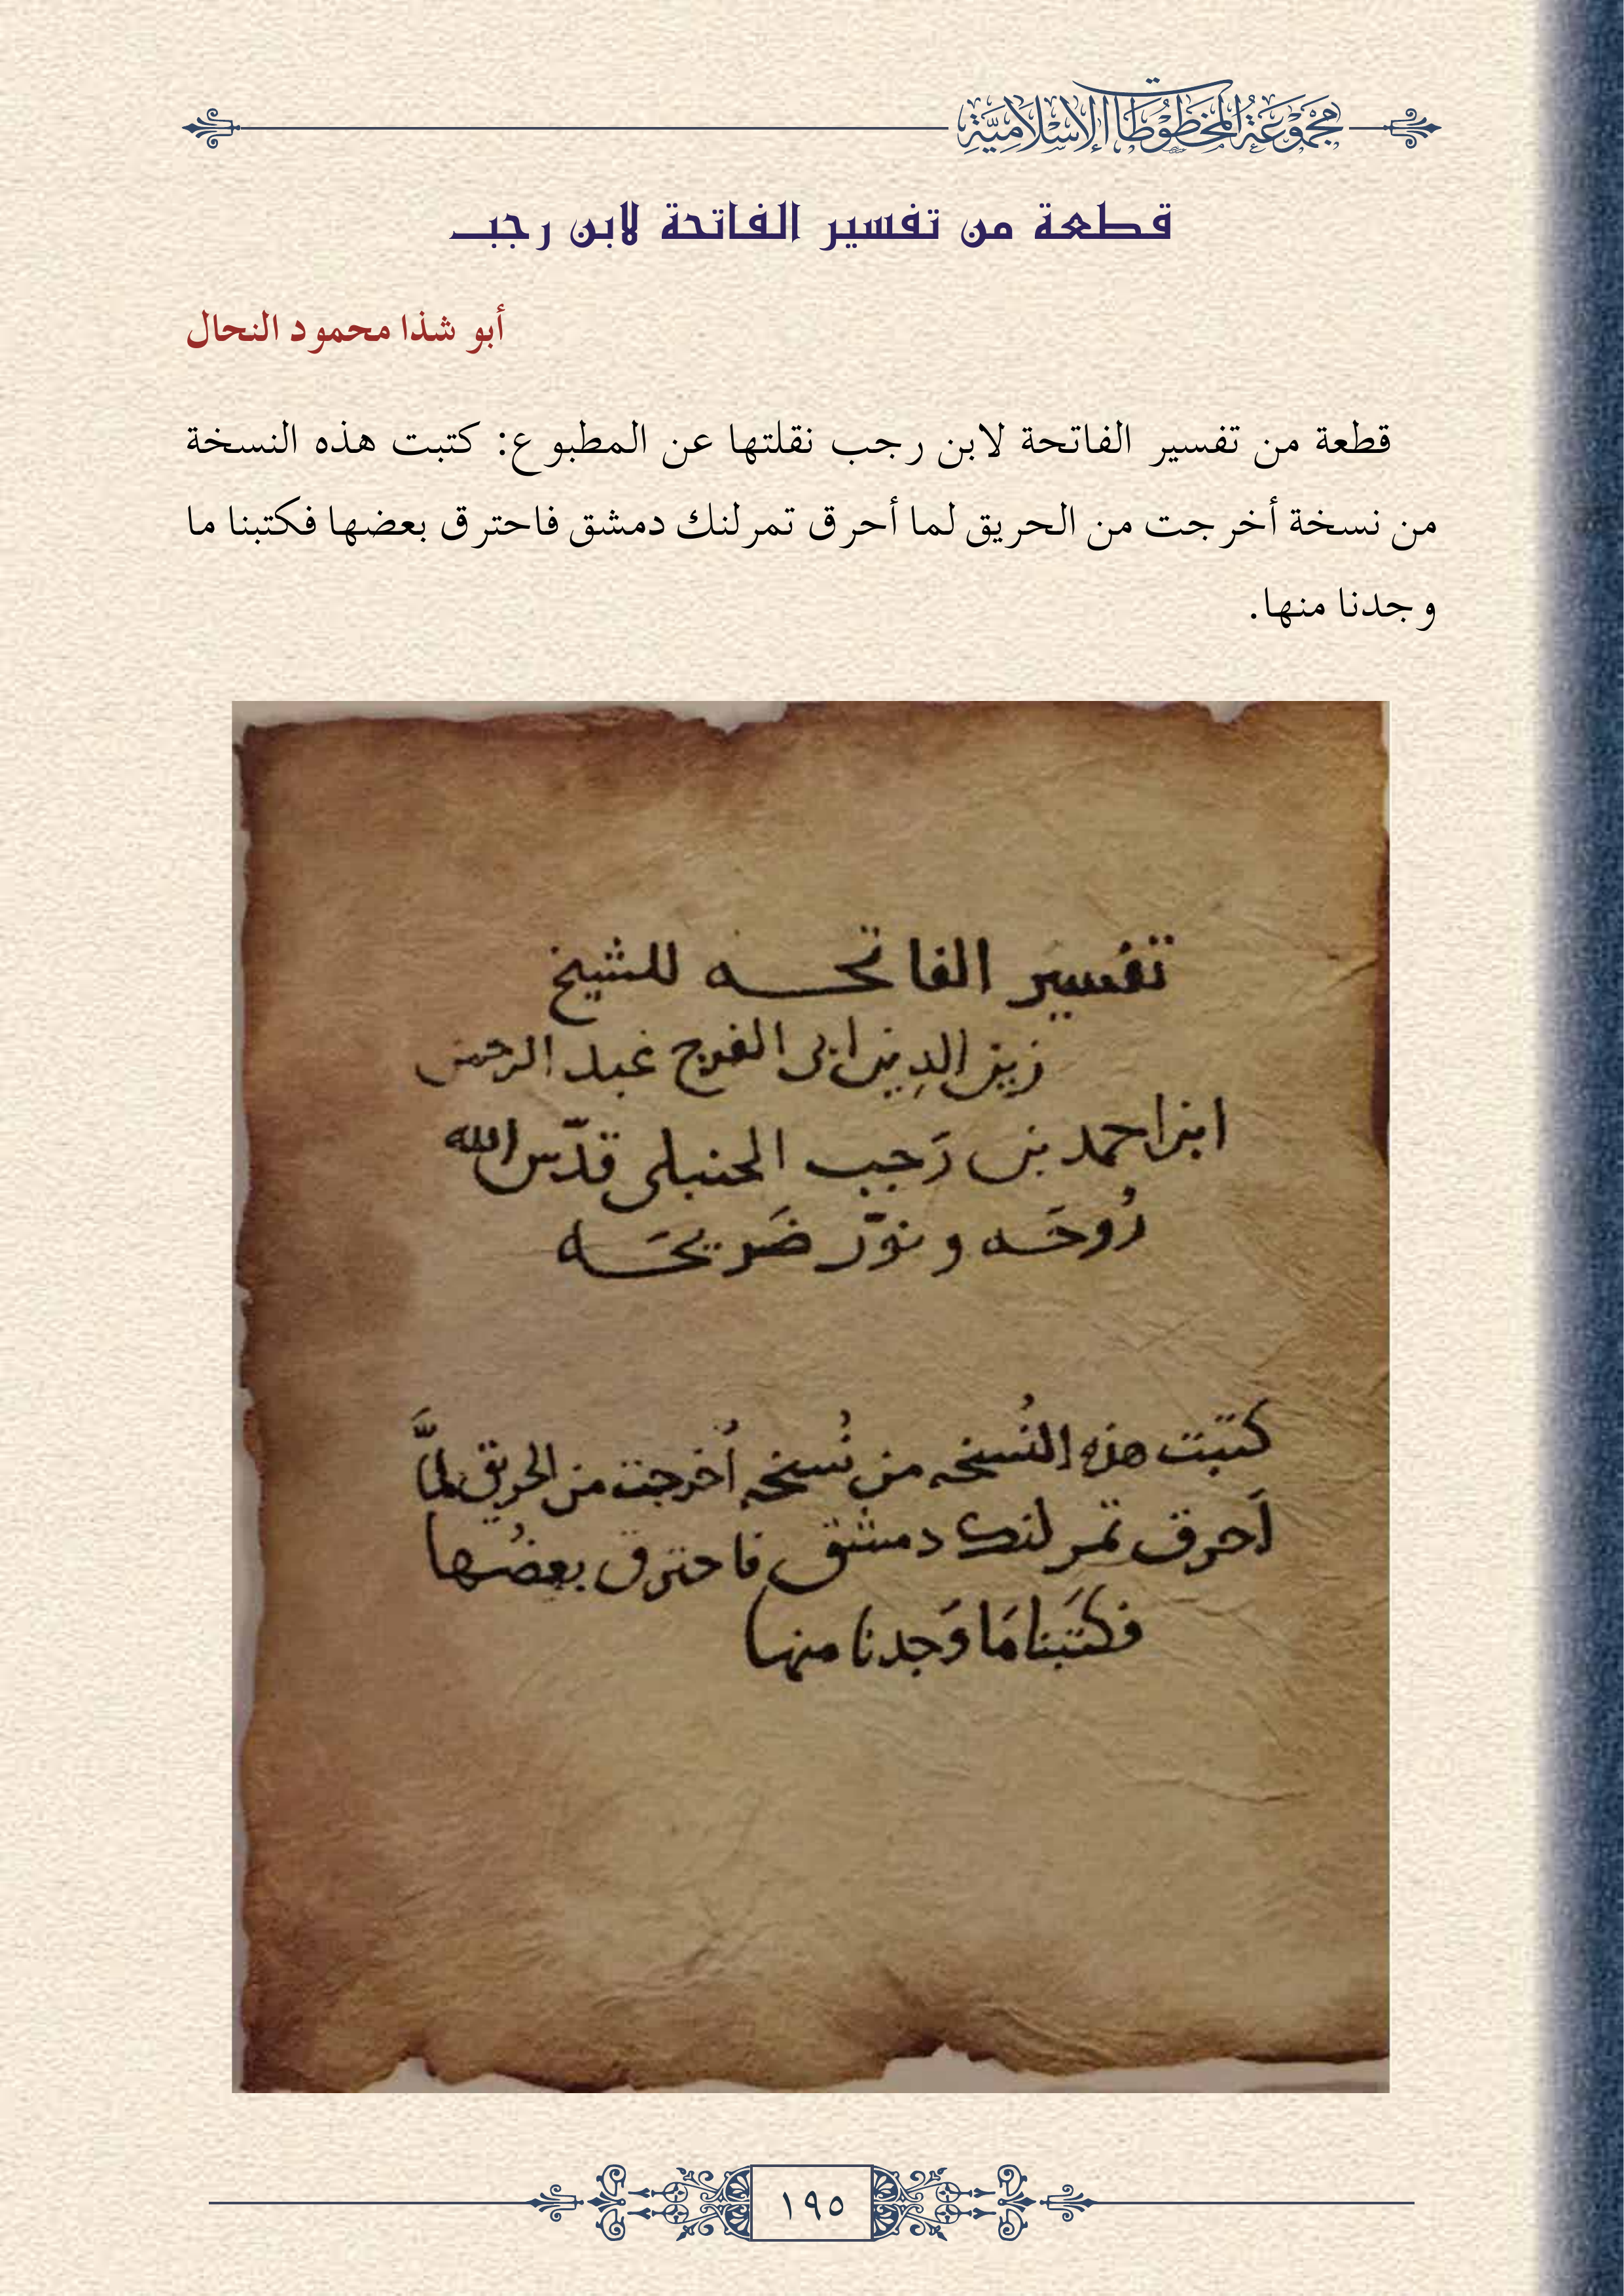 مجموعة المخطوطات الإسلامية
قطعة من تفسير الفاتحة لابن رجب
أبو شذا محمود النحال
قطعة من تفسير الفاتحة لابن رجب نقلتها عن المطبوع: كتبت هذه النسخة
من نسخة أخرجت من الحريق لما أحرق تمرلنك دمشق فاحترق بعضها فكتبنا ما
وجدنا منها.
تفسير الفاتحه للشيخ
زين الدين ابى الفرج عبد الرحمن
ابن احمد بن رَجب الحنبلى قدّس الله
رُوحَه ونوّر ضَريحَه
كتبت هذه النُسخه من نُسخه أُخرجت من الحريق لمَّا
أَحرق تمرلنك دمشق فاحترق بعضُها
فكَتبنا مَا وَجدنا منها
١٩٥